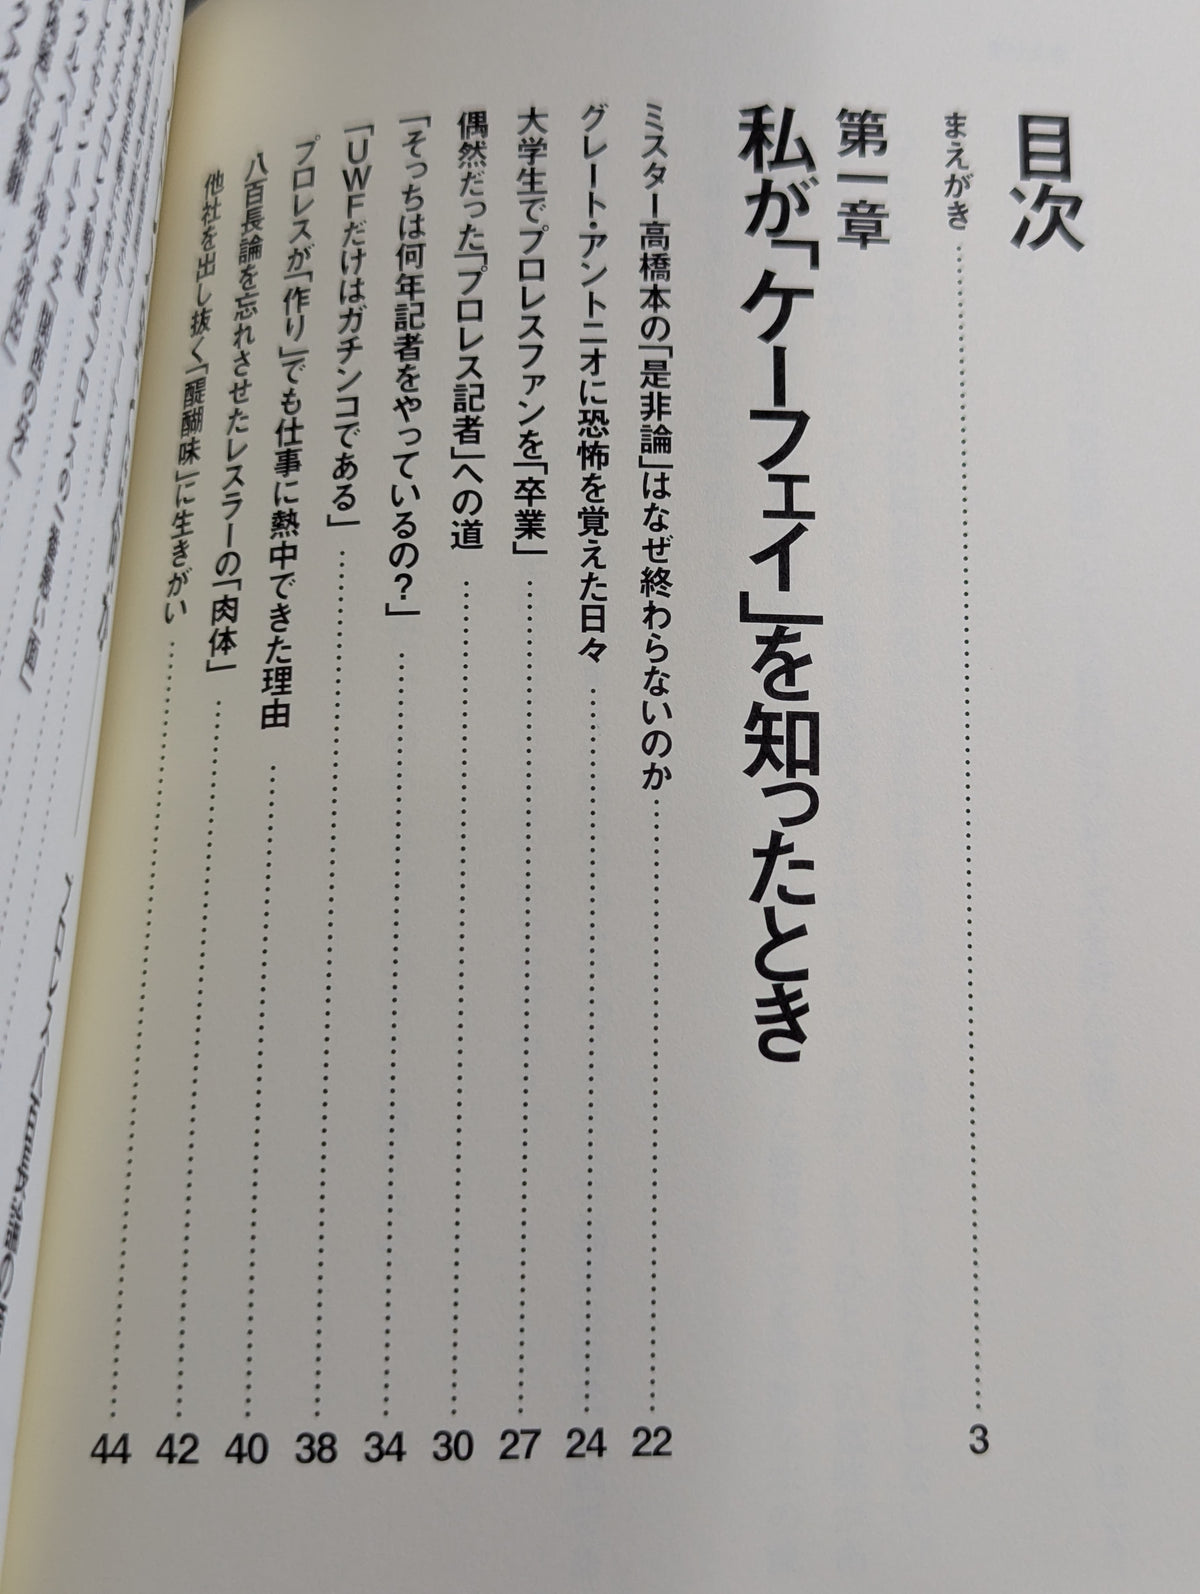 目次
まえがき 3
第一章
私が「ケーフェイ」を知ったとき
ミスター高橋本の「是非論」はなぜ終わらないのか 22
グレート・アントニオに恐怖を覚えた日々 24
大学生でプロレスファンを「卒業」 27
偶然だった「プロレス記者」への道 30
「そっちは何年記者をやっているの?」 34
「UWFだけはガチンコである」 38
プロレスが「作り」でも仕事に熱中できた理由 40
八百長論を忘れさせたレスラーの「肉体」 42
他社を出し抜く「醍醐味」に生きがい 44